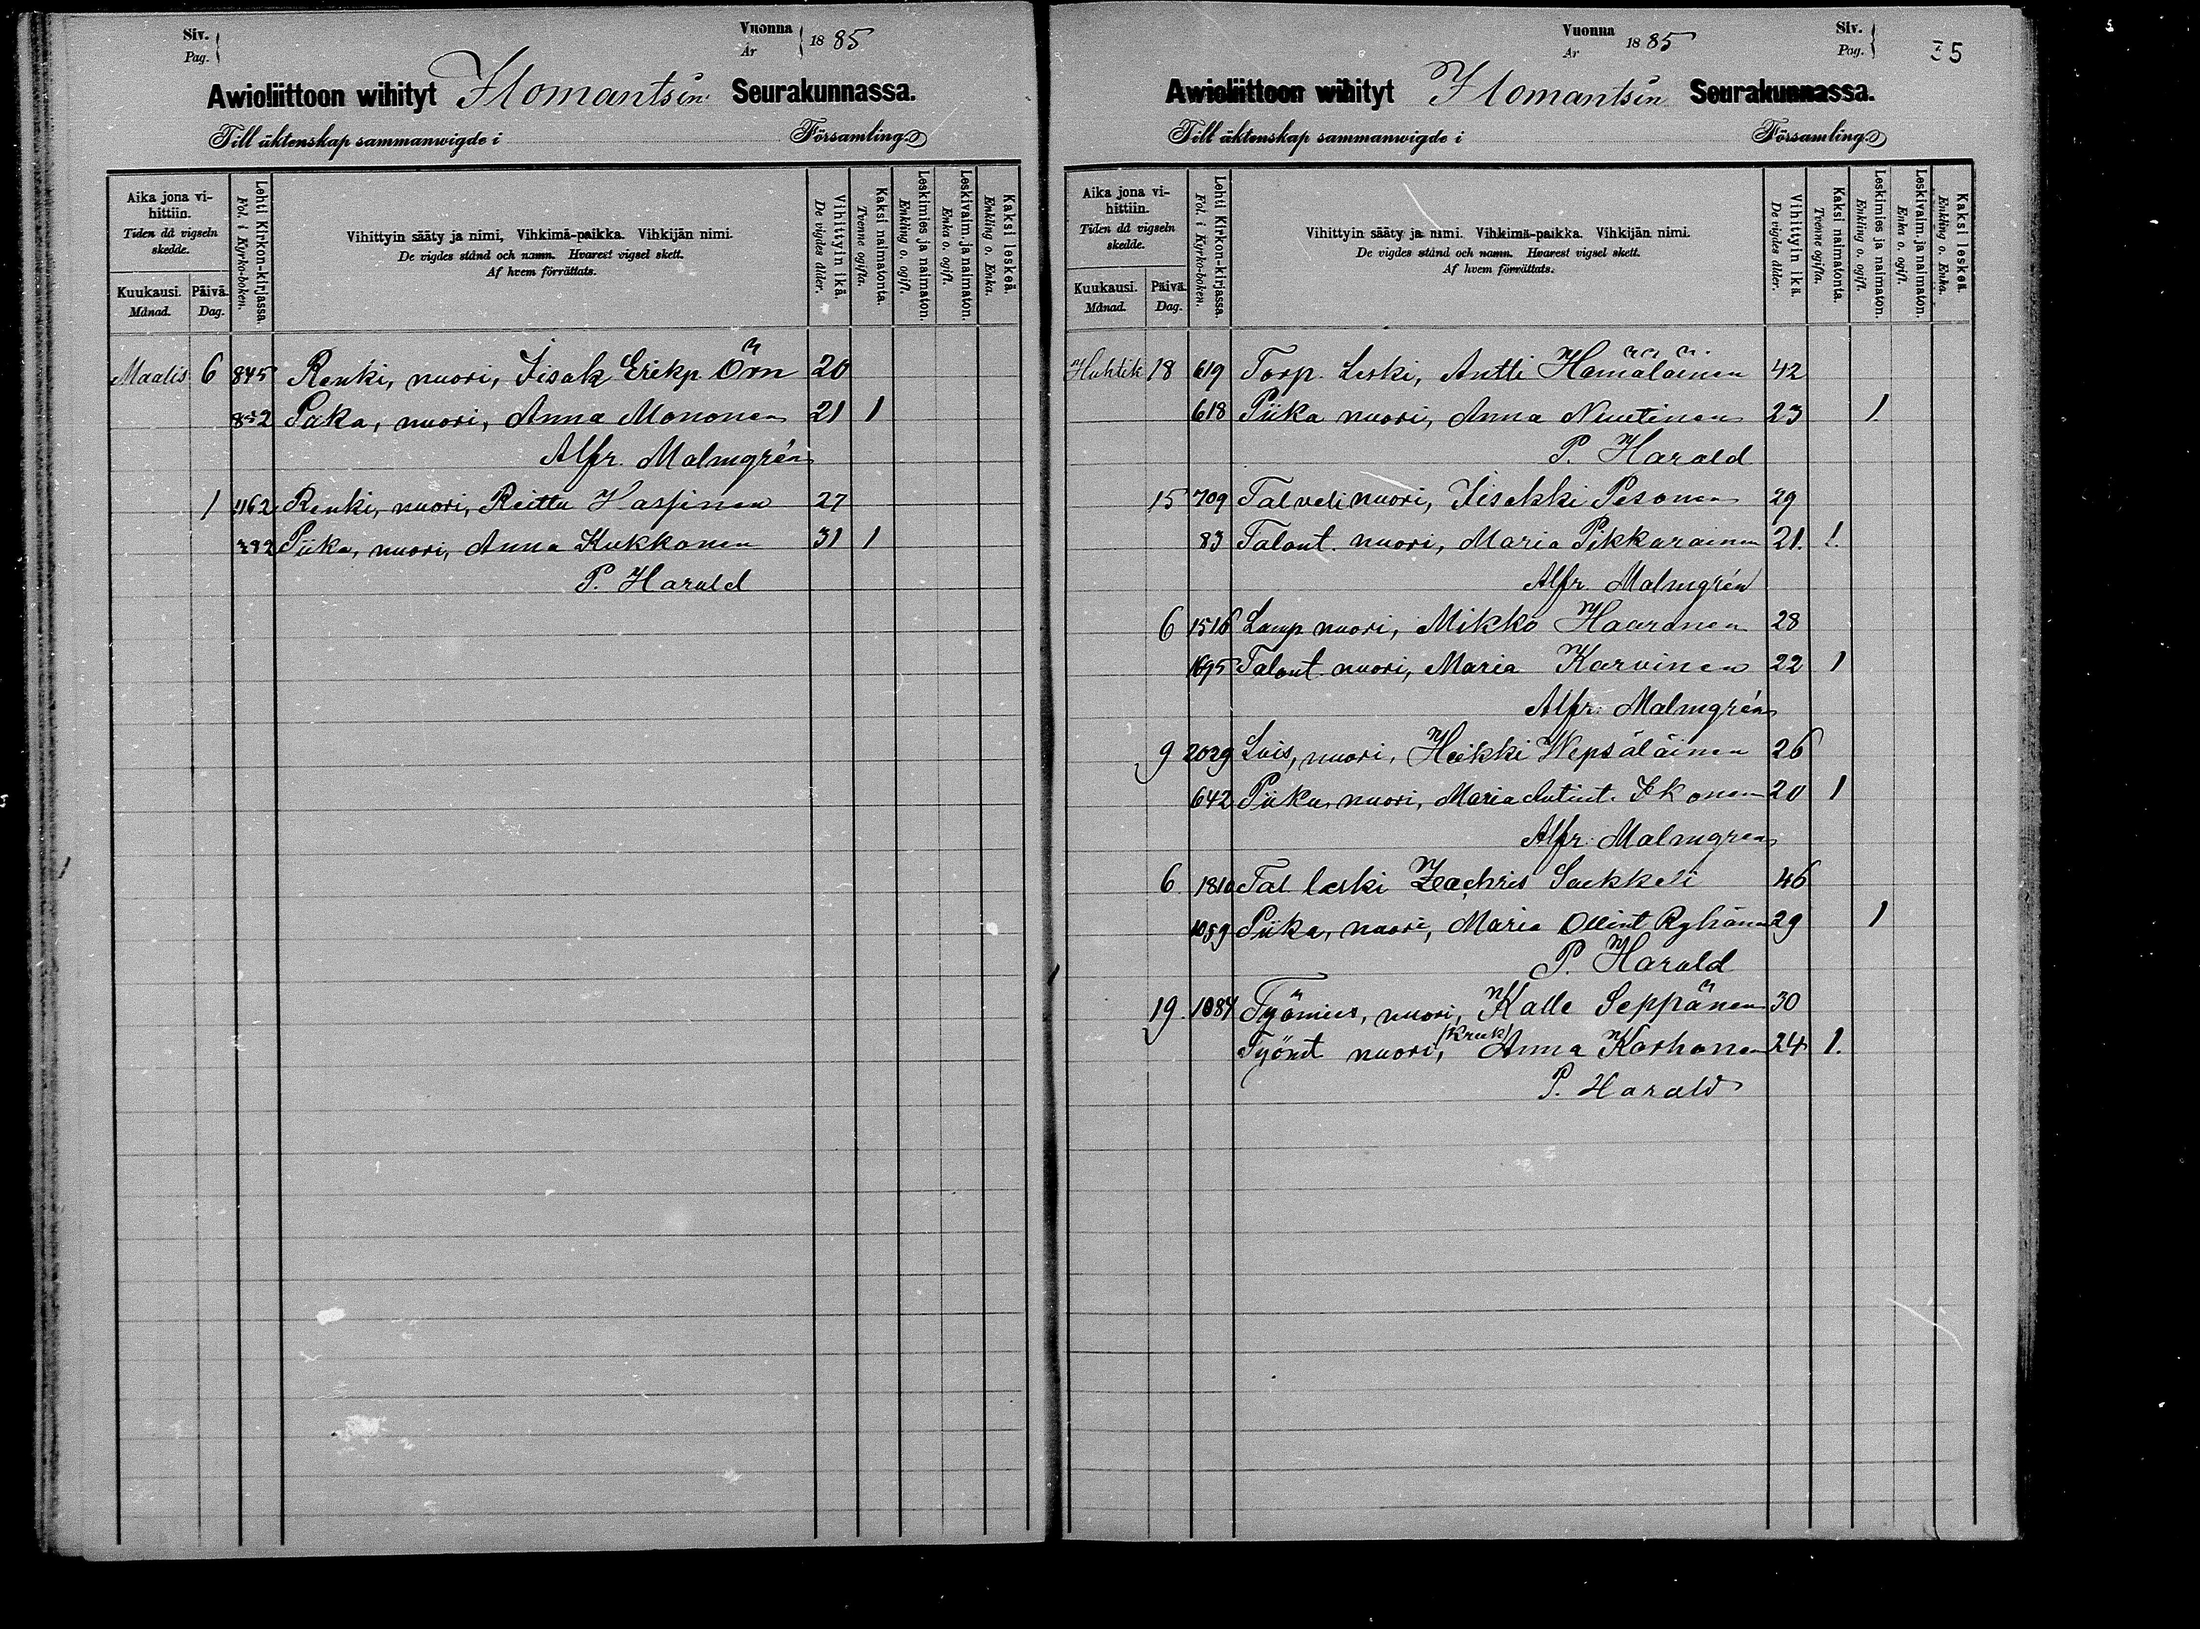 Siv.
Pag.
Vuonna
År 1885
Awioliittoon wihityt Ilomantsin Seurakunnassa.
Till äktenskap sammanwigde i Församling
Aika jona vi-
hittiin.
Tiden då vigseln
skedde.
Kuukausi.
Månad.
Päivä.
Dag.
Lehti Kirkon-kirjassa.
Fol. i Kyrko-boken.
Vihittyin sääty ja nimi, Vihkimä-paikka. Vihkijän nimi.
De vigdes stånd och namn. Hvarest vigsel skett.
Af hvem förrättats.
Vihittyin ikä.
De vigdes ålder.
Kaksi naimatonta.
Tvenne ogifta.
Leskimies ja naimaton.
Enkling o. ogift.
Leskivaim. ja naimaton.
Enka o. ogift.
Kaksi leskeä.
Enkling o. Enka.
Maalis 6 845 Renki, nuori, Iisak Erikp Örn 20
852 Piika, nuori, Anna Mononen 21 1
Alfr. Malmgrén
1 1162 Renki, nuori, Reittu Hassinen 27
392 Piika, nuori, Anna Kukkonen 31 1
P. Harald
Siv.
Pag. 35
Vuonna
År 1885
Awioliittoon wihityt Ilomantsin Seurakunnassa.
Till äktenskap sammanwigde i Församling
Aika jona vi-
hittiin.
Tiden då vigseln
skedde.
Kuukausi.
Månad.
Päivä.
Dag.
Lehti Kirkon-kirjassa.
Fol. i Kyrko-boken.
Vihittyin sääty ja nimi. Vihkimä-paikka. Vihkijän nimi.
De vigdes stånd och namn. Hvarest vigsel skett.
Af hvem förrättats.
Vihittyin ikä.
De vigdes ålder.
Kaksi naimatonta.
Tvenne ogifta.
Leskimies ja naimaton.
Enkling o. ogift.
Leskivaim. ja naimaton.
Enka o. ogift.
Kaksi leskeä.
Enkling o. Enka.
Huhtik 18 619 Torp. Leski, Antti Hämäläinen 42
618 Piika nuori, Anna Nuutinen 23 1
P. Harald
15 709 Talveli nuori, Iisakki Pesonen 29
83 Talont. nuori, Maria Pikkarainen 21. 1.
Alfr. Malmgrén
6 1516 Lamp nuori, Mikko Haaranen 28
1695 Talont. nuori, Maria Karvinen 22 1
Alfr. Malmgrén
9 2029 Lois, nuori, Heikki Wepsäläinen 26
642 Piika, nuori, Maria Antint. Ikonen 20 1
Alfr. Malmgren
6. 1810 Tal leski Zachris Saukkeli 46
1059 Piika, nuori, Maria Ollint Ryhänen 29 1
P. Harald
19. 1084 Työmies, nuori, Kalle Seppänen 30
Työmt nuori, (Kreik) Anna Korhonen 24 1.
P. Harald